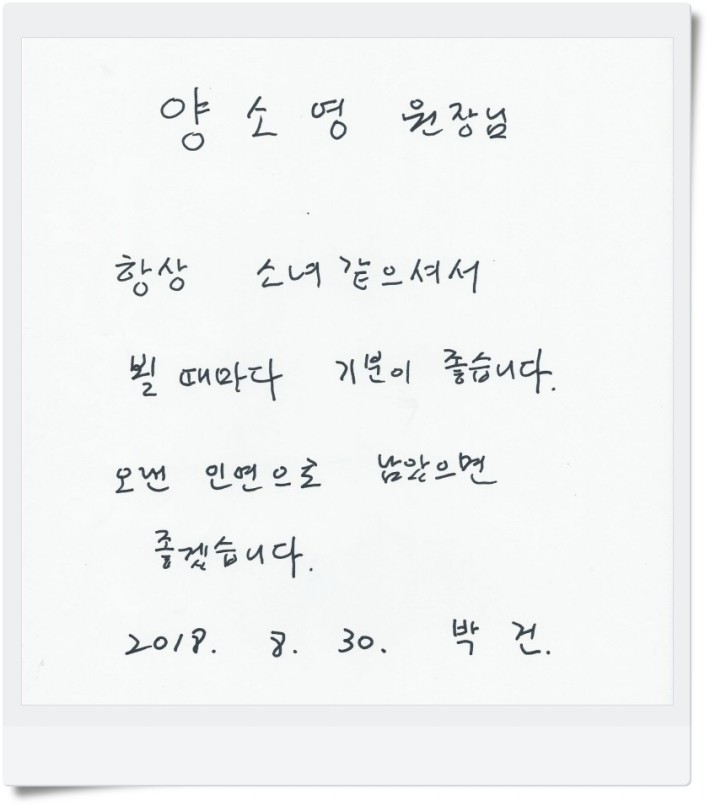 양소영 원장님
항상 소녀 같으셔서
뵐 때마다 기분이 좋습니다.
오랜 인연으로 남았으면
좋겠습니다.
2018. 8. 30. 박 건.